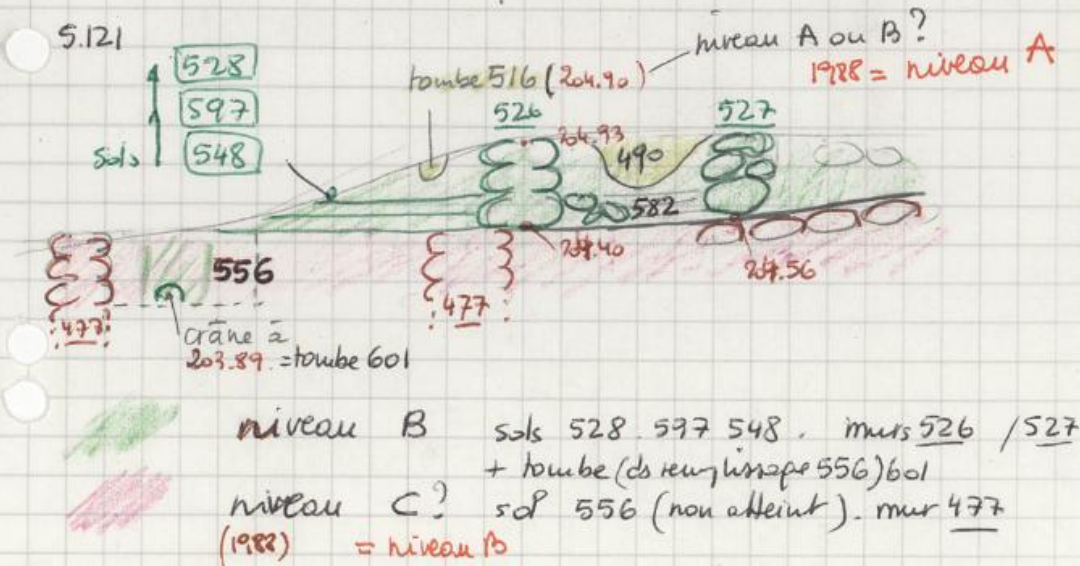 S.121
528
597
548
sols
tombe 516 (204.90)
niveau A ou B?
1988 = niveau A
526
527
204.93
490
582
204.40
204.56
556
477
477
crâne à
203.89. = tombe 601
niveau B sols 528. 597 548. murs 526 / 527
+ tombe (ds remplissage 556) 601
niveau C? sol 556 (non atteint). mur 477
(1988) = niveau B